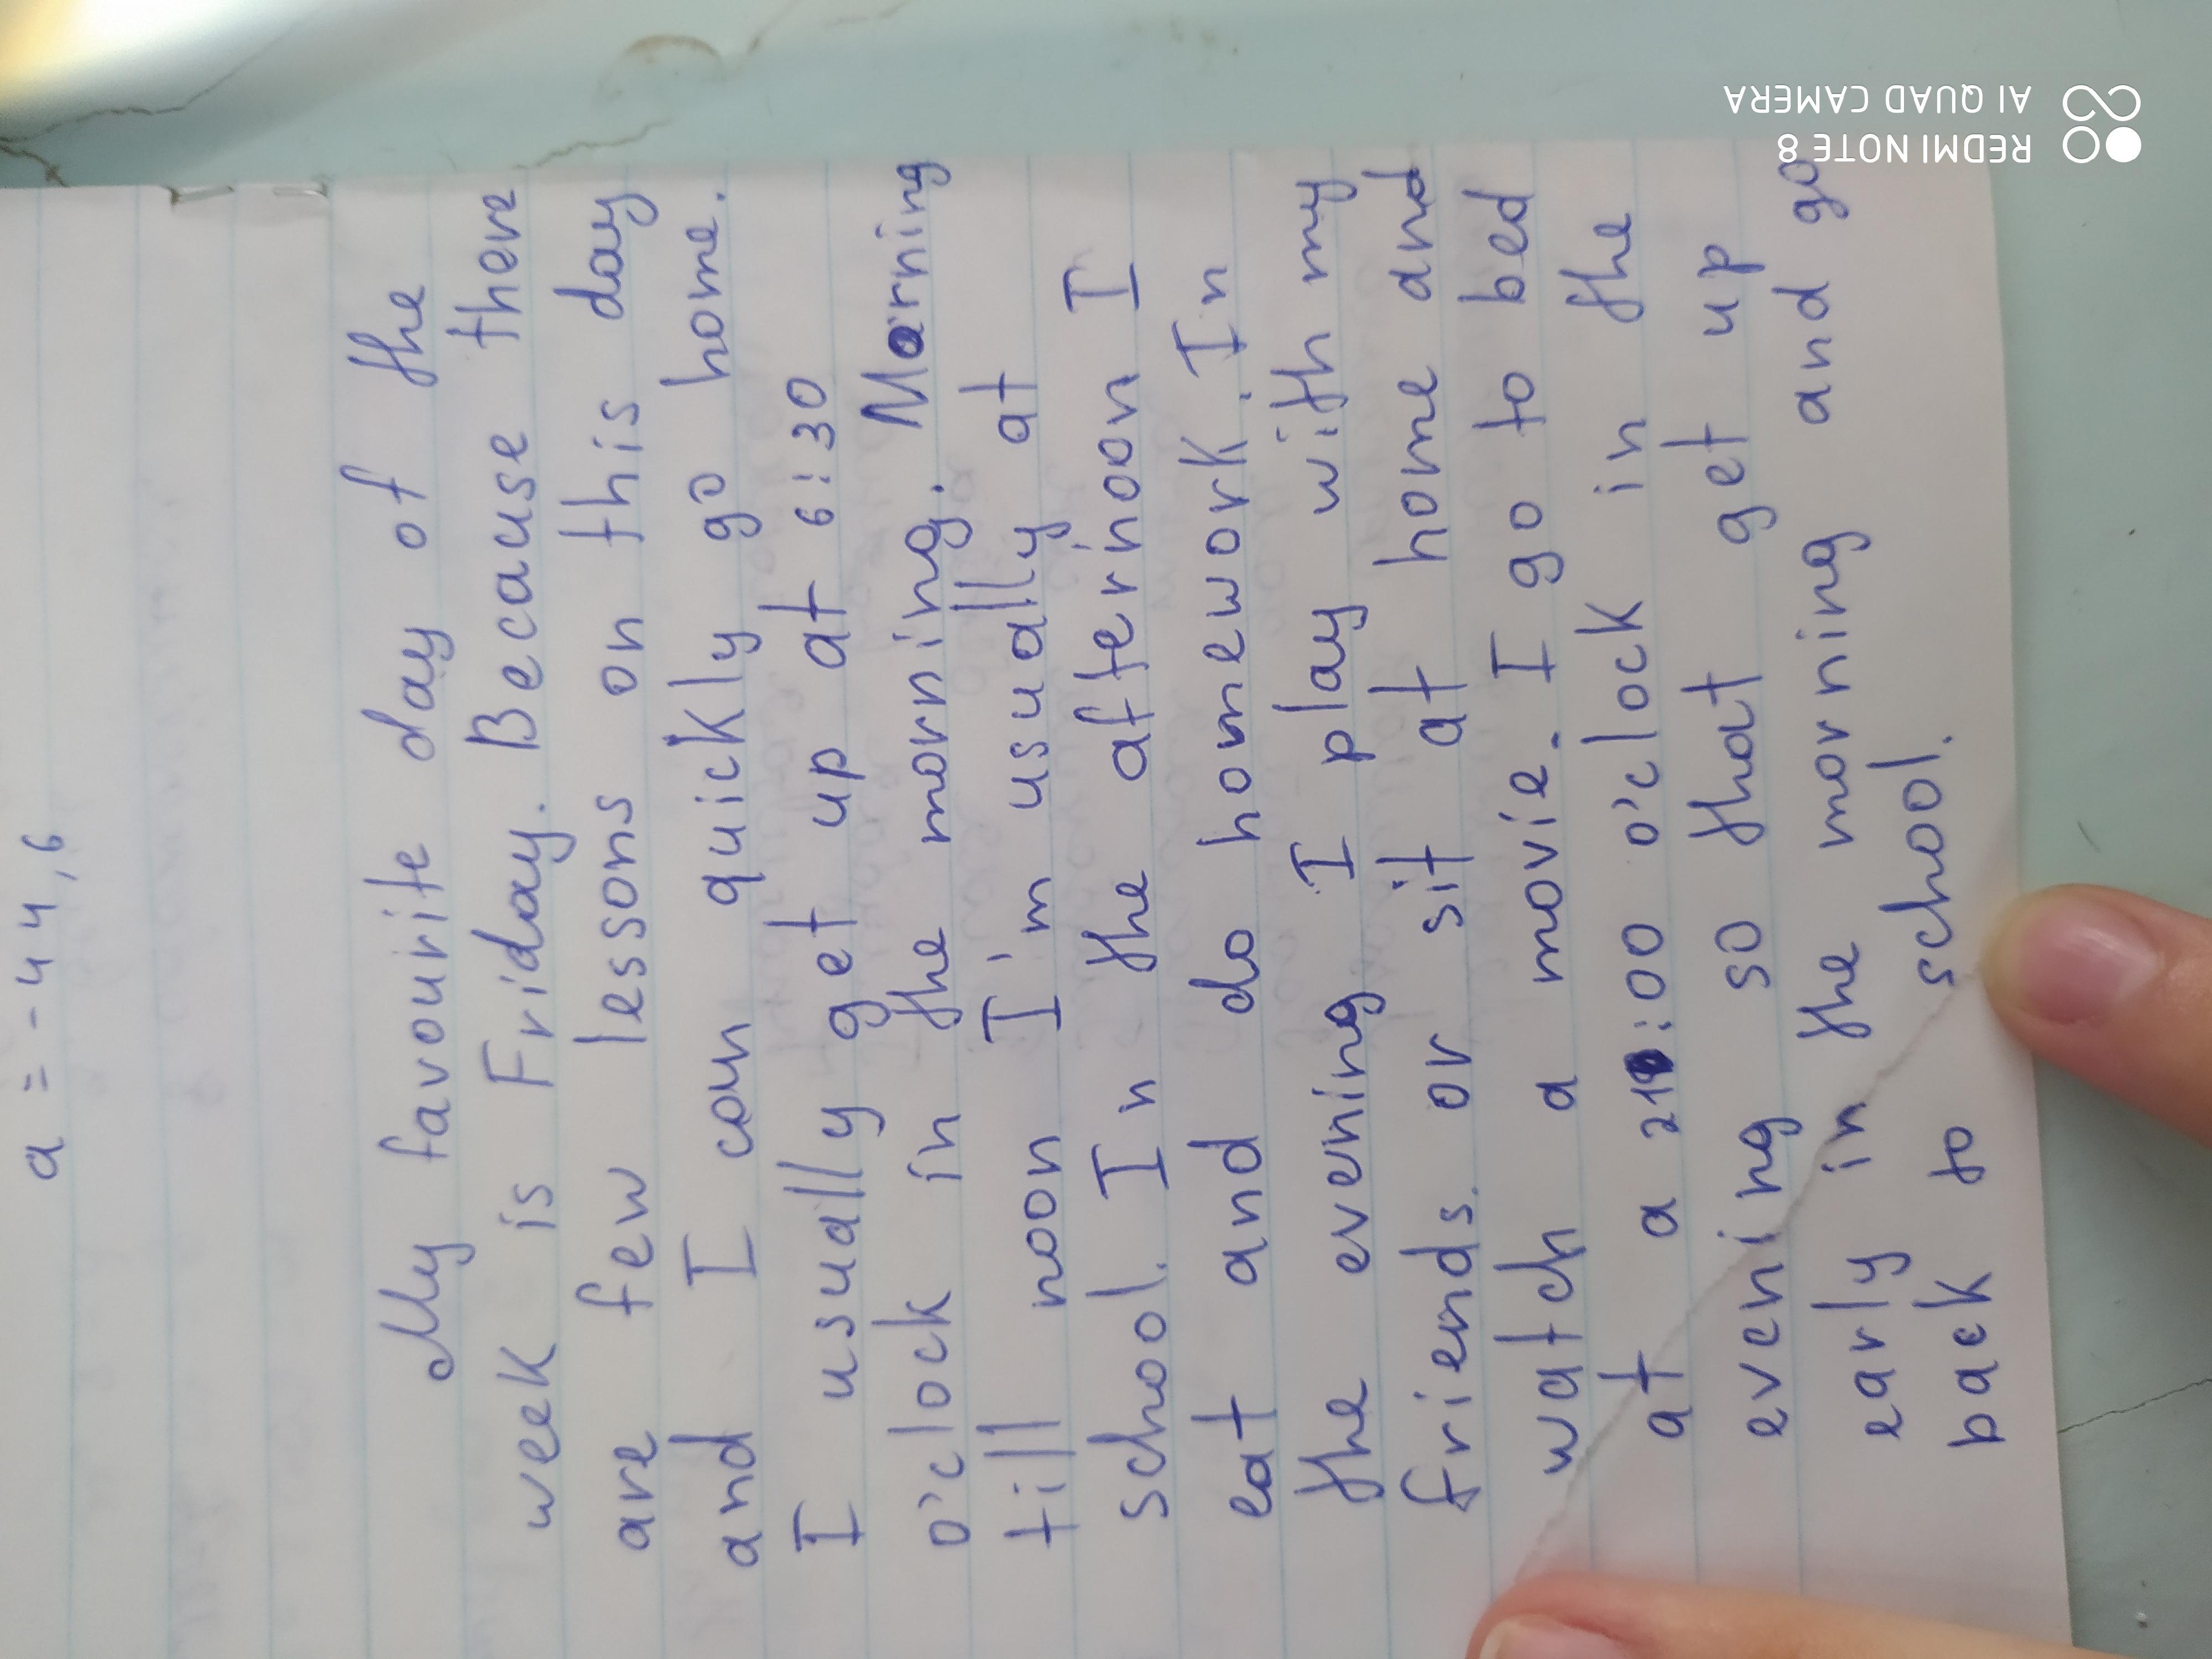 a = -44,6
My favourite day of the
week is Friday. Because there
are few lessons on this day
and I can quickly go home.
I usually get up at 6:30
o'clock in the morning. Morning
till noon I'm usually at
school. In the afternoon I
eat and do homework. In
the evening I play with my
friends or sit at home and
watch a movie. I go to bed
at a 21:00 o'clock in the
evening so that get up
early in the morning and go
back to school.
REDMI NOTE 8
AI QUAD CAMERA